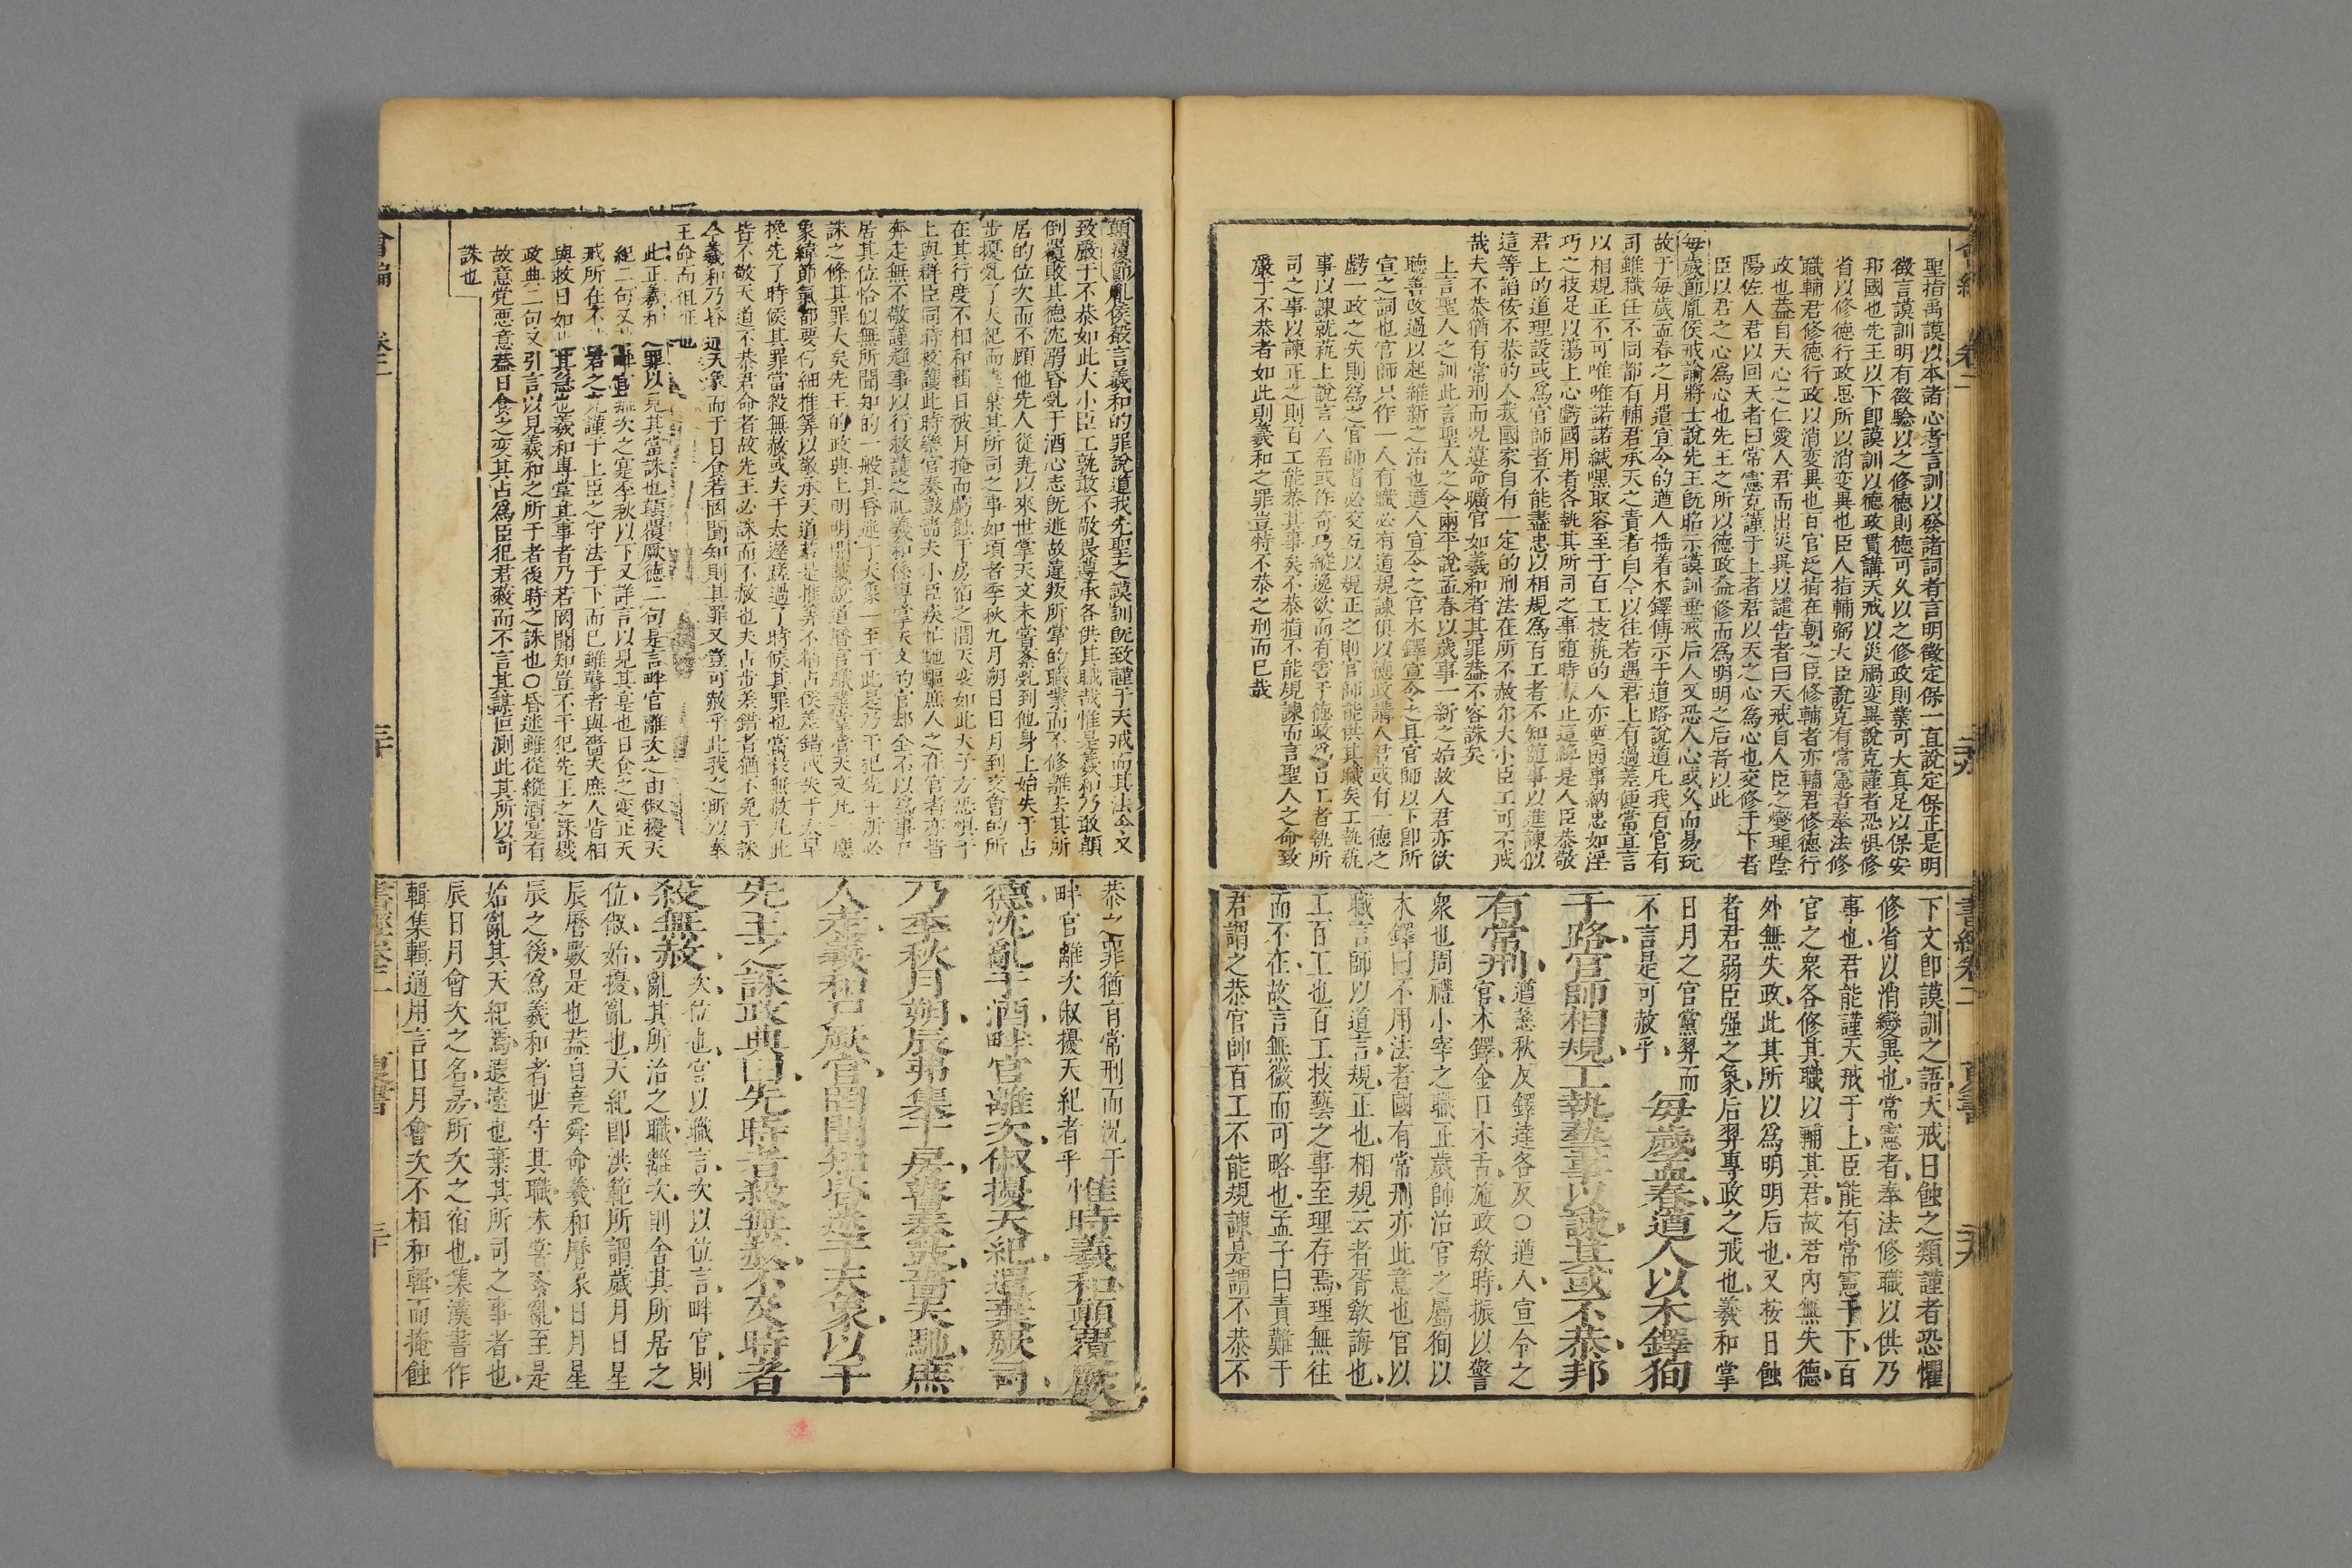 會編 卷二
聖指禹謨以本諸心者言訓以發諸詞者言明徵定保一直說定保正是明
徵言謨訓明有徵驗以之修德則德可久以之修政則業可大真足以保安
邦國也先王以下卽謨訓以德政貫講天戒以災禍变異說克謹者恐惧修
省以修德行政思所以消变異也臣人指輔弼大臣說克有常憲者奉法修
職輔君修德行政以消变異也百官泛指在朝之臣修輔者亦輔君修德行
政也盖自天心之仁愛人君而出災異以譴告者曰天戒自人臣之燮理陰
陽佐人君以回天者曰常憲克謹于上者君以天之心為心也交修于下者
臣以君之心為心也先王之所以德政益修而為明明之后者以此
每歲節胤侯戒諭將士說先王旣昭示謨訓垂戒后人又恐人心或久而易玩
故于每歲孟春之月遣宣令的遒人揺着木鐸傳示于道路說道凡我百官有
司雖職任不同都有輔君承天之責者自今以往若遇君上有過差便當直言
以相規正不可唯唯諾諾緘嘿取容至于百工技藝的人亦要因事納忠如淫
巧之技足以蕩上心虧國用者各執其所司之事随時諫止這纔是人臣恭敬
君上的道理設或為官師者不能盡忠以相規為百工者不知随事以進諫似
這等諂佞不恭的人我國家自有一定的刑法在所不赦尔大小臣工可不戒
哉夫不恭猶有常刑而况違命曠官如羲和者其罪益不容誅矣
上言聖人之訓此言聖人之令兩平說孟春以歲事一新之始故人君亦欲
聽善改過以起維新之治也遒人宣令之官木鐸宣令之具官師以下卽所
宣之詞也官師只作一人有職必有道規諫俱以德政講人君或有一德之
虧一政之失則為之官師者必交互以規正之則官師能供其職矣工執藝
事以諫就藝上說言人君或作奇巧縱逸欲而有害于德政為百工者執所
司之事以諫正之則百工能恭其事矣不恭指不能規諫而言聖人之命致
嚴于不恭者如此則羲和之罪豈特不恭之刑而已哉
書經卷二 夏書
下文卽謨訓之語天戒日蝕之類謹者恐懼
修省以消變異也常憲者奉法修職以供乃
事也君能謹天戒于上臣能有常憲于下百
官之衆各修其職以輔其君故君內無失德
外無失政此其所以為明明后也又桉日蝕
者君弱臣强之象后羿專政之戒也羲和掌
日月之官黨羿而
不言是可赦乎 每歲孟春遒人以木鐸狥
于路官師相規工執藝事以諫其或不恭邦
有常刑 遒慈秋反鐸達各反○遒人宣令之
官木鐸金口木舌施政敎時振以警
衆也周禮小宰之職正歲帥治官之屬狥以
木鐸曰不用法者國有常刑亦此意也官以
職言師以道言規正也相規云者胥敎誨也
工百工也百工技藝之事至理存焉理無往
而不在故言無微而可略也孟子曰責難于
君謂之恭官師百工不能規諫是謂不恭不
顛覆節胤侯嘆言羲和的罪說道我先聖之謨訓旣致謹于天戒而其法令又
致嚴于不恭如此大小臣工孰敢不敬畏遵承各供其職哉惟是羲和乃敢顛
倒覆敗其德沈溺昏亂于酒心志旣迷故違叛所掌的職業而不修離去其所
居的位次而不顧他先人從堯以來世掌天文未嘗紊亂到他身上始失于占
步擾亂了天紀而遠棄其所司之事如項者季秋九月朔日日月到交會的所
在其行度不相和輯日被月掩而虧蝕于房宿之間天变如此天子方恐惧于
上與群臣同時救護此時樂官奏鼓嗇夫小臣疾忙馳驅庶人之在官者亦皆
奔走無不敬謹趨事以行救護之礼羲和係專掌天文的官却全不以為事尸
居其位恰似無所聞知的一般其昏迷于天象一至于此是乃干犯先王所必
誅之條其罪大矣先王的政典上明明開載說道曆官職業掌管天文凡一應
象緯節氣都要仔細推筭以敬承天道若是推筭不精占候差錯或失于太早
搀先了時候其罪當殺無赦或失于太遲蹉過了時候其罪也當殺無赦凡此
皆不敬天道不恭君命者故先王必誅而不赦也夫占步差錯者猶不免于誅
今羲和乃昏迷天象而于日食若罔聞知則其罪又豈可赦乎此我之所以奉
王命而徂征也
此正羲和之罪以見其當誅也顛覆厥德二句是言畔官離次之由俶擾天
紀二句又畔官離次之寔季秋以下又詳言以見其寔也日食之变正天
戒所在君之克謹于上臣之守法于下而已雖瞽者與嗇夫庶人皆相
與救日如此其急也羲和專掌其事者乃若罔聞知豈不干犯先王之誅哉
政典二句又引言以見羲和之所于者後時之誅也○昏迷雖從縱酒寔有
故意党悪意盖日食之变其占為臣犯君羲而不言其謀叵測此其所以可
誅也
會編 卷二 三十
恭之罪猶有常刑而况于
畔官離次俶擾天紀者乎 惟時羲和顛覆厥
德沈亂于酒畔官離次俶擾天紀遐棄厥司
乃季秋月朔辰弗集于房瞽奏鼓嗇夫馳庶
人走羲和尸厥官罔聞知昏迷于天象以干
先王之誅政典曰先時者殺無赦不及時者
殺無赦 次位也官以職言次以位言畔官則
亂其所治之職離次則舍其所居之
位俶始擾亂也天紀卽洪範所謂歲月日星
辰曆數是也盖自堯舜命羲和曆象日月星
辰之後為羲和者世守其職未嘗紊亂至是
始亂其天紀焉遐遠也棄其所司之事者也
辰日月會次之名房所次之宿也集漢書作
輯集輯通用言日月會次不相和輯而掩蝕
書經卷二 夏書 三十